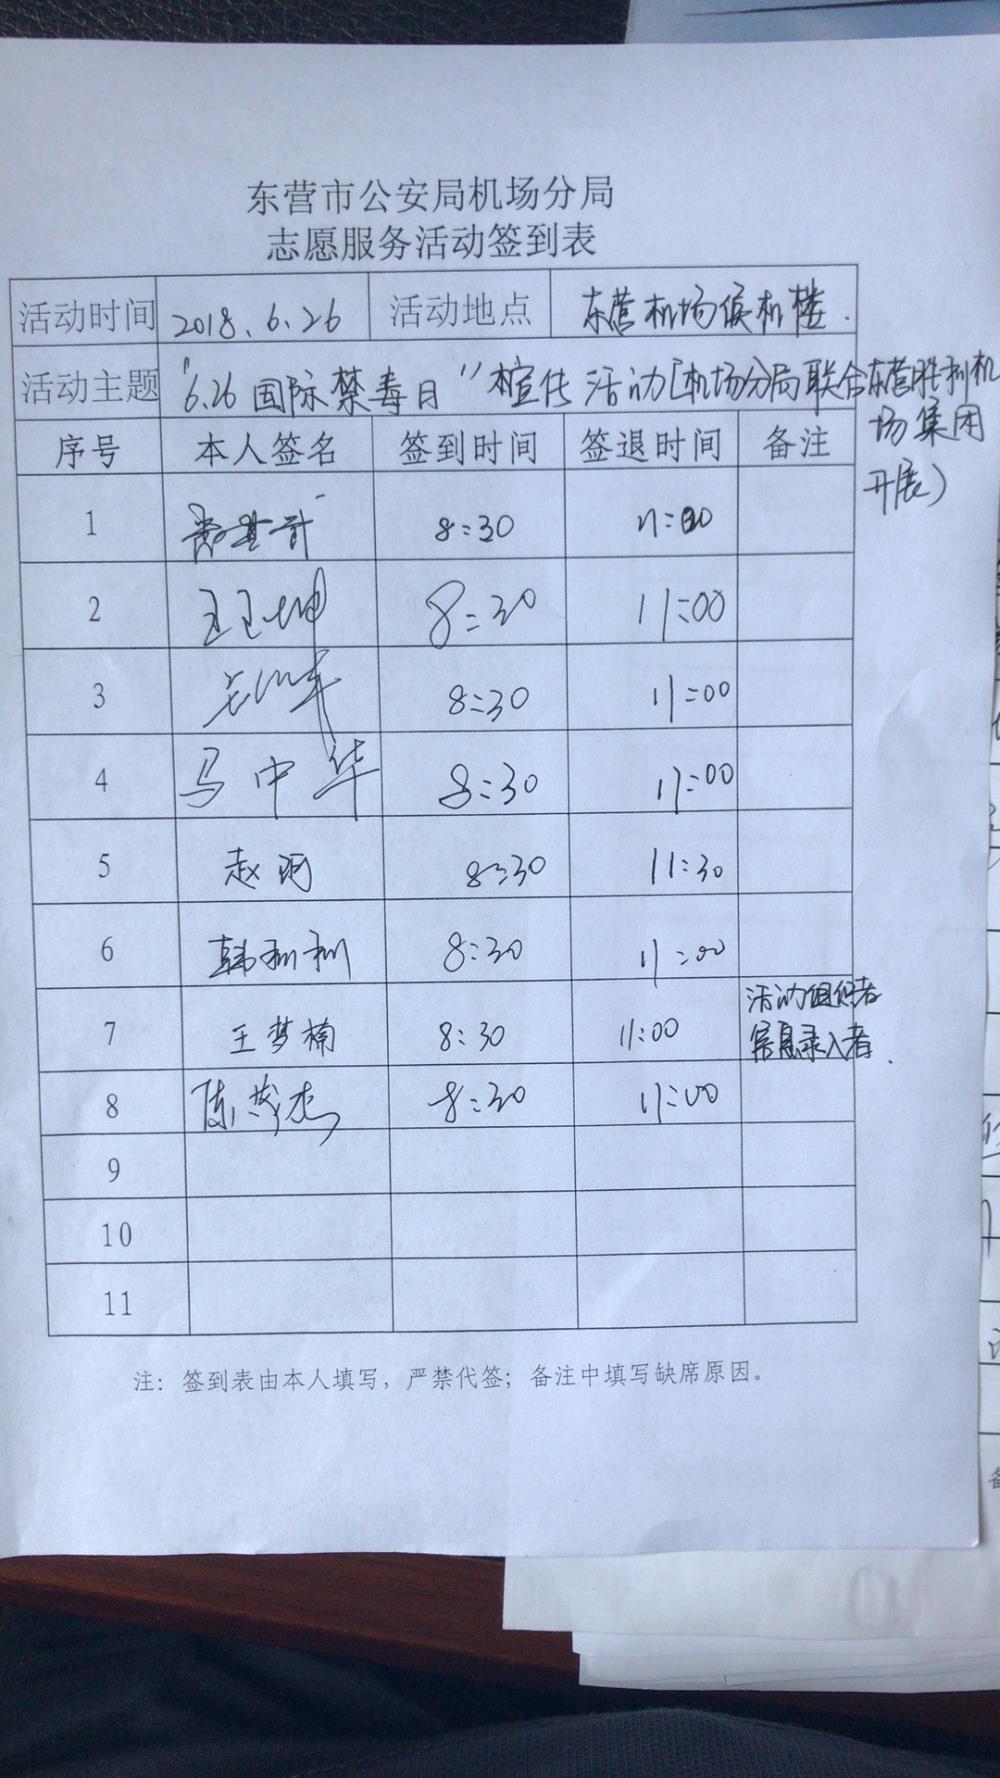 东营市公安局机场分局
志愿服务活动签到表
活动时间 2018.6.26 活动地点 东营机场候机楼.
活动主题 "6.26国际禁毒日"宣传活动(机场分局联合东营胜利机
场集团
开展)
序号 本人签名 签到时间 签退时间 备注
1 8:30 11:00
2 王玉坤 8:30 11:00
3 8:30 11:00
4 马中华 8:30 11:00
5 赵 8:30 11:30
6 韩利利 8:30 11:00
7 王梦楠 8:30 11:00 活动组织者
信息录入者.
8 陈杰 8:30 11:00
9
10
11
注：签到表由本人填写，严禁代签；备注中填写缺席原因。